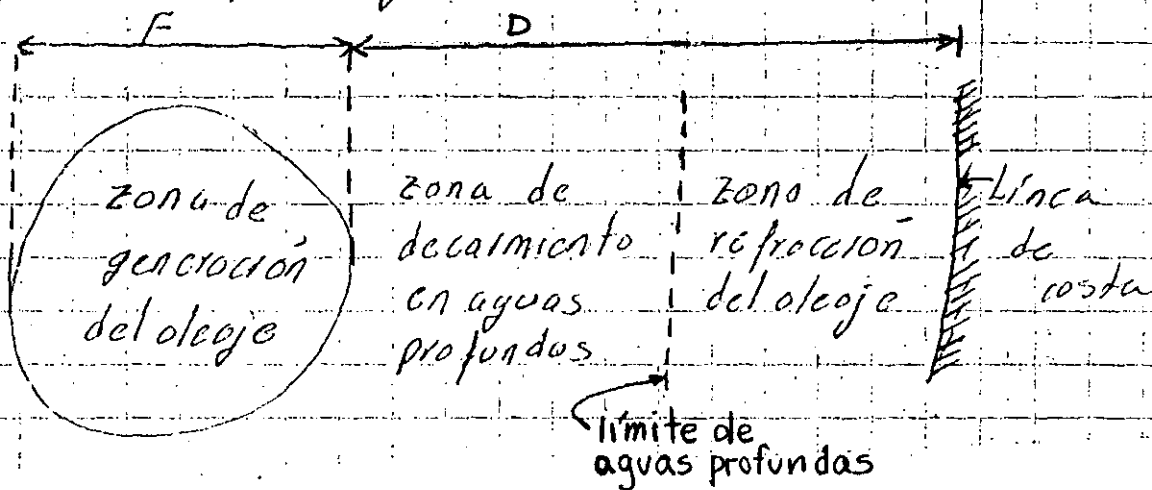 F
D
zona de
generación
del oleaje
zona de
decaimiento
en aguas
profundas
zona de
refracción
del oleaje
Línea
de
costa
límite de
aguas profundas